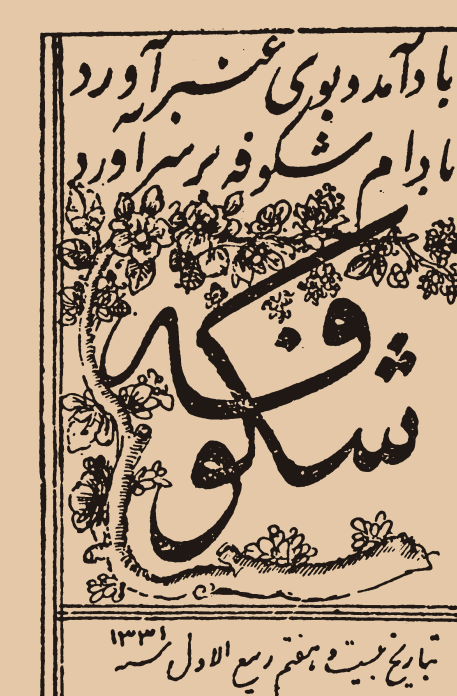 باد آمد و بوی عنبر آورد
بادام شکوفه بر سر آورد
شکوفه
بتاریخ بیست و هفتم ربیع الاول سنه ۱۳۳۱